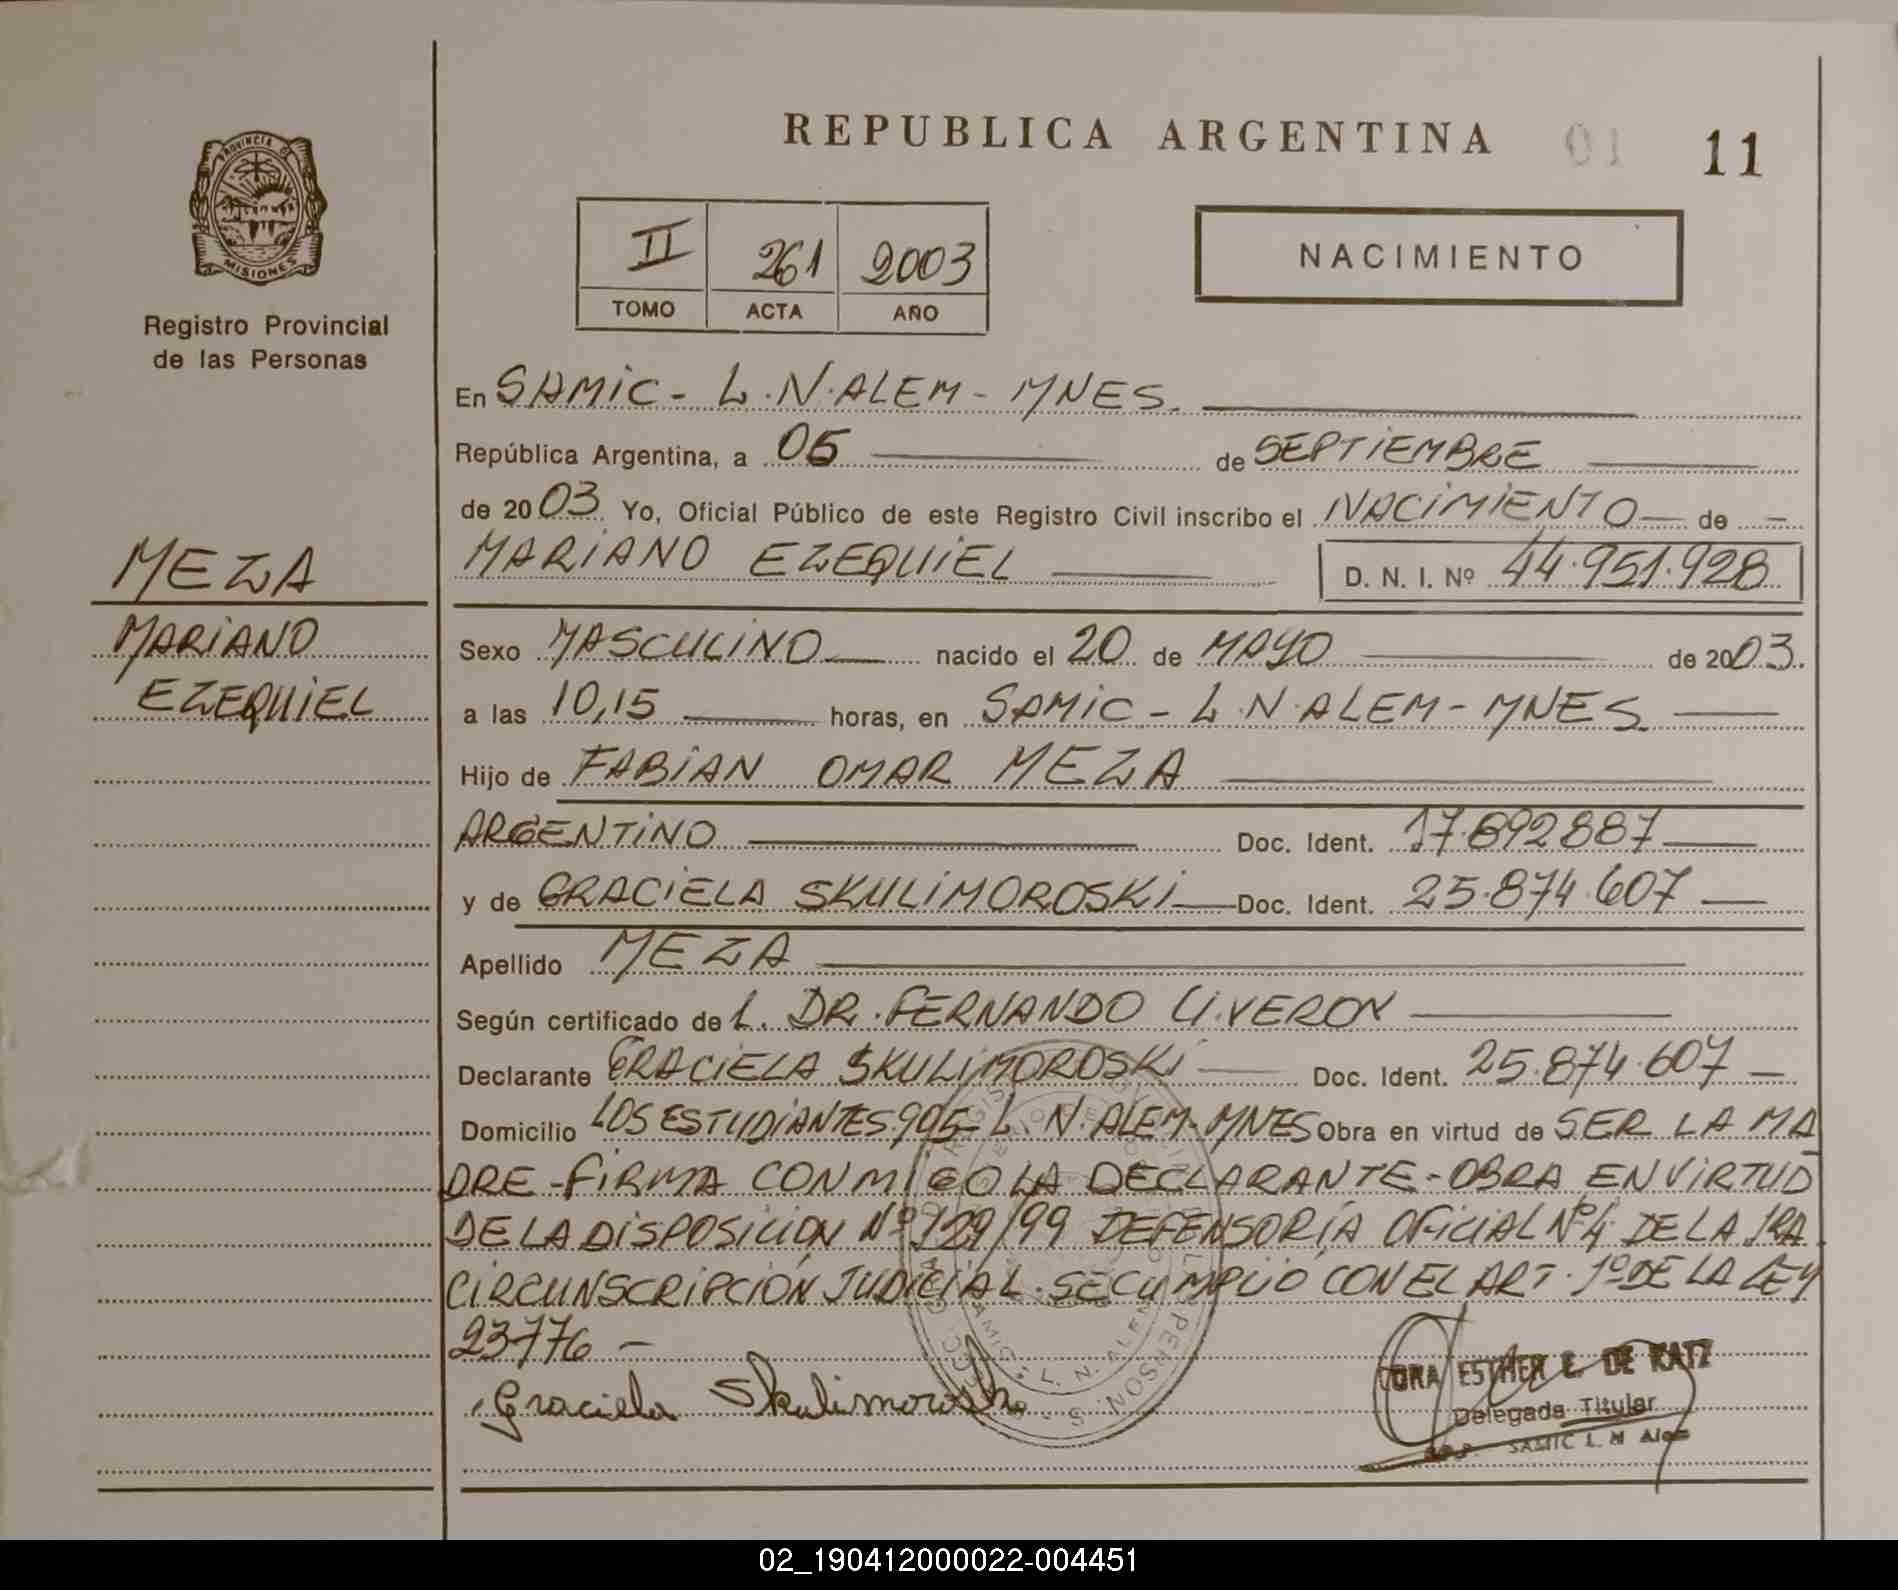 REPUBLICA ARGENTINA
01 11
PROVINCIA DE
MISIONES
Registro Provincial
de las Personas
II 261 2003
TOMO ACTA AÑO
NACIMIENTO
En SAMIC - L.N.ALEM - MNES.
República Argentina, a 05 de SEPTIEMBRE
de 2003. Yo, Oficial Público de este Registro Civil inscribo el NACIMIENTO de
MARIANO EZEQUIEL D. N. I. Nº 44.951.928
MEZA
MARIANO
EZEQUIEL
Sexo MASCULINO nacido el 20 de MAYO de 2003.
a las 10,15 horas, en SAMIC - L.N.ALEM - MNES.
Hijo de FABIAN OMAR MEZA
ARGENTINO Doc. Ident. 17.692887
y de GRACIELA SKULIMOROSKI Doc. Ident. 25.874.607
Apellido MEZA
Según certificado de L. DR. FERNANDO VERON
Declarante GRACIELA SKULIMOROSKI Doc. Ident. 25.874.607
Domicilio LOS ESTUDIANTES 905 - L. N. ALEM - MNES Obra en virtud de SER LA MA
DRE - FIRMA CONMIGO LA DECLARANTE - OBRA EN VIRTUD
DE LA DISPOSICION Nº 129/99 DEFENSORIA OFICIAL Nº 4 DE LA 1RA.
CIRCUNSCRIPCIÓN JUDICIAL. SE CUMPLIO CON EL ART. 1º DE LA LEY
23776 -
Graciela Skulimoroski
ESTHER E. DE RATZ
Delegada Titular
SAMIC L. N Alem
02_190412000022-004451